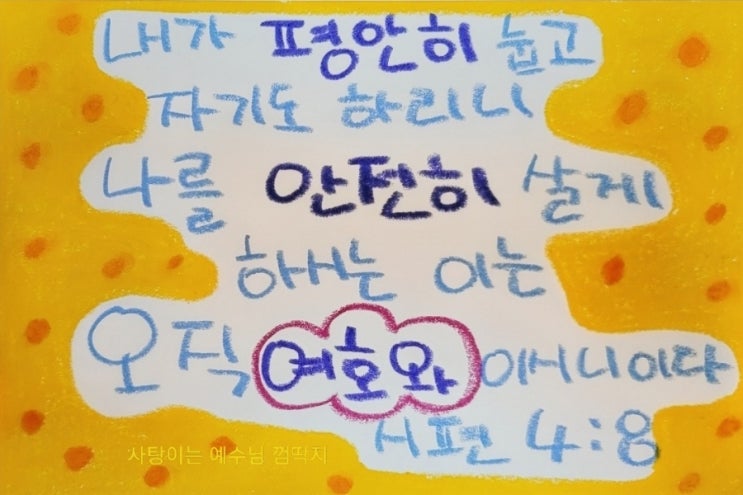 내가 평안히 눕고
자기도 하리니
나를 안전히 살게
하시는 이는
오직 여호와 이시니이다
시편 4:8
사탕이는 예수님 껌딱지